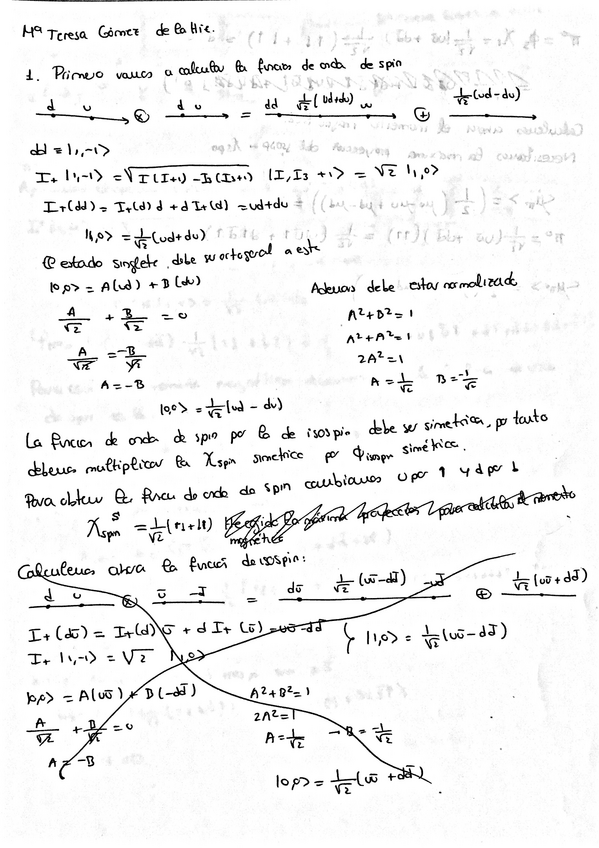 Mª Teresa Gómez de la Hiz.
1. Primero vamos a calcular la función de onda de spin
d u ⊗ d u = dd 1/√2 (ud+du) uu ⊕ 1/√2 (ud-du)
dd = |1,-1>
I+ |1,-1> = √(I(I+1) - I3(I3+1)) |I, I3 +1> = √2 |1,0>
I+(dd) = I+(d) d + d I+(d) = ud+du
|1,0> = 1/√2 (ud+du)
El estado singlete debe ser ortogonal a este
|0,0> = A(ud) + B(du)
Además debe estar normalizado
A/√2 + B/√2 = 0
A²+B²=1
A²+A²=1
A/√2 = -B/√2
2A²=1
A = -B
A = 1/√2 B = -1/√2
|0,0> = 1/√2 (ud - du)
La función de onda de spin por la de isospin debe ser simetrica, por tanto
debemos multiplicar la χspin simetrica por ϕisospin simétrica.
Para obtener la func de onda de spin cambiamos u por ↑ y d por ↓
χ^S spin = 1/√2 (↑↓+↓↑)
Calculemos ahora la función de isospin:
d u ⊗ ū -d̄ = dū 1/√2 (uū-dd̄) -ud̄ ⊕ 1/√2 (uū+dd̄)
I+(dū) = I+(d)ū + d I+(ū) = uū-dd̄
|1,0> = 1/√2 (uū-dd̄)
I+ |1,-1> = √2 |1,0>
|0,0> = A(uū) + B(-dd̄)
A²+B²=1
A/√2 + B/√2 = 0
2A²=1
A = 1/√2 → B = -1/√2
A = -B
|0,0> = 1/√2 (uū + dd̄)